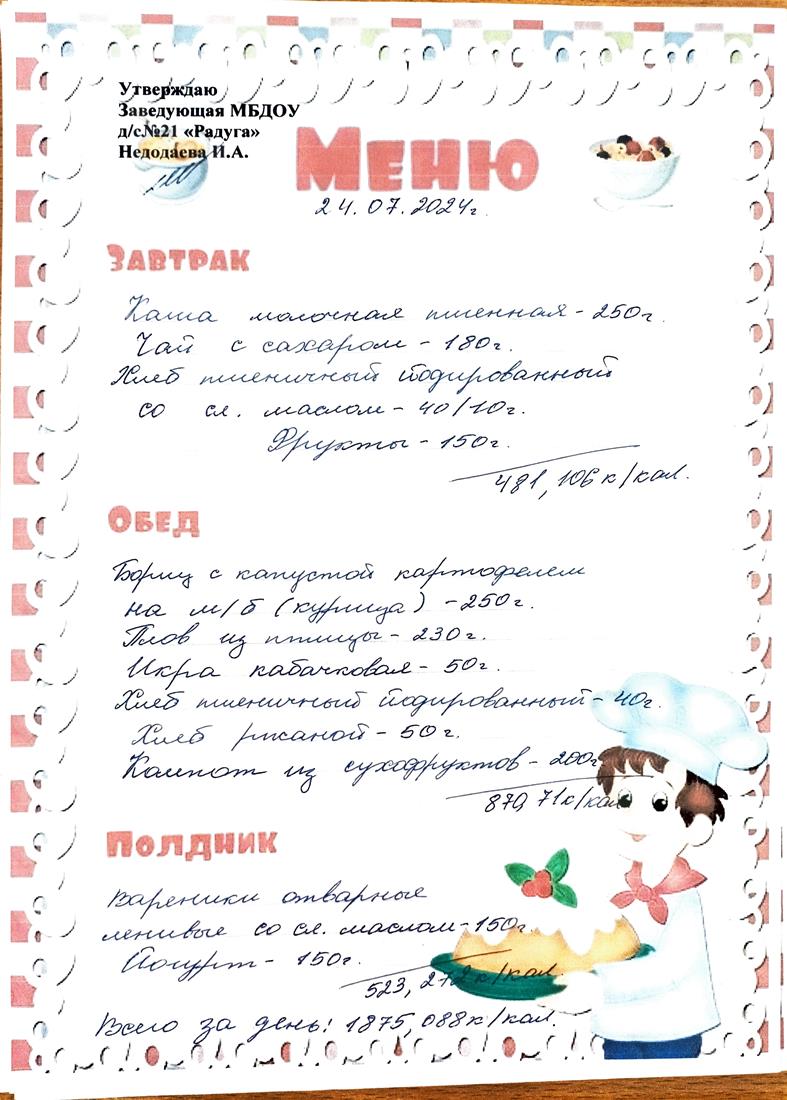 Утверждаю
Заведующая МБДОУ
д/с№21 «Радуга»
Недодаева И.А.
Меню
24.07.2024г.
Завтрак
Каша молочная пшенная - 250г.
Чай с сахаром - 180г.
Хлеб пшеничный йодированный
со сл. маслом - 40/10г.
Фрукты - 150г.
481,106 к/кал.
Обед
Борщ с капустой картофелем
на м/б (курица) - 250г.
Плов из птицы - 230г.
Икра кабачковая - 50г.
Хлеб пшеничный йодированный - 40г.
Хлеб ржаной - 50г.
Компот из сухофруктов - 200г
870,71к/кал
Полдник
Вареники отварные
ленивые со сл. маслом - 150г.
Йогурт - 150г.
523,272 к/кал
Всего за день: 1875,088к/кал.